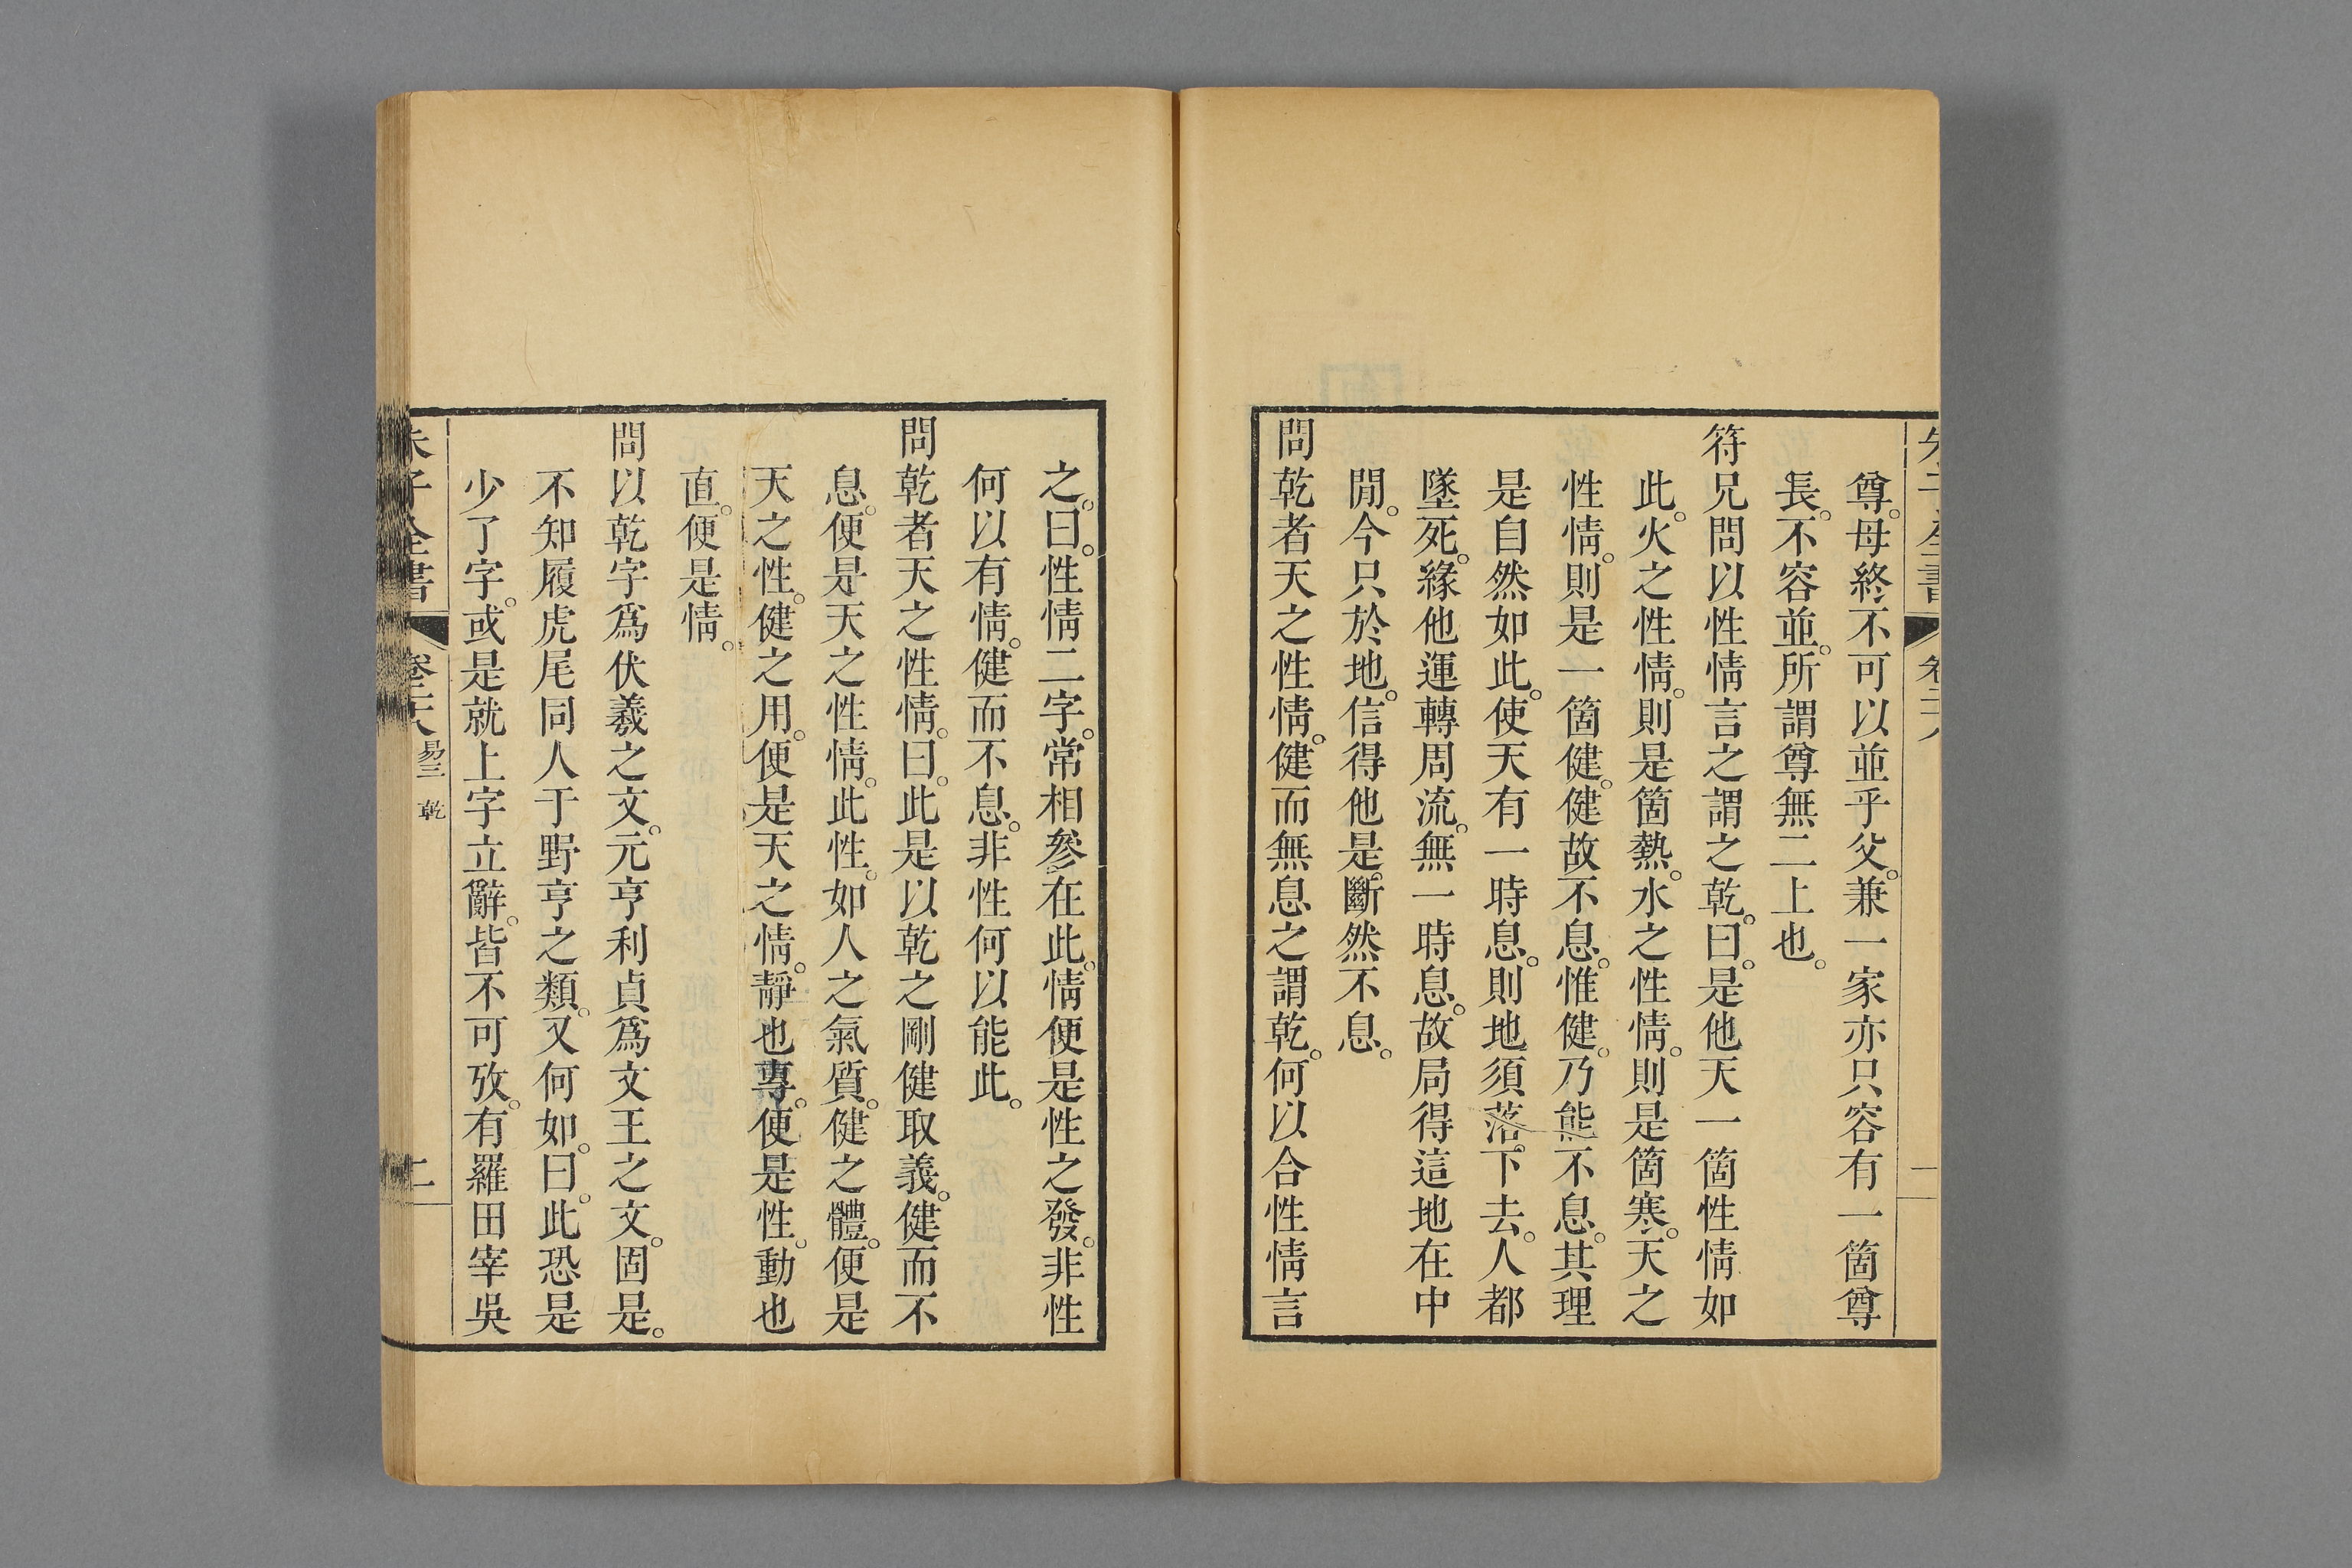 尊。母終不可以並乎父。兼一家亦只容有一箇尊
長。不容並。所謂尊無二上也。
符兄問以性情言之謂之乾。曰。是他天一箇性情如
此。火之性情。則是箇熱。水之性情。則是箇寒。天之
性情。則是一箇健。健故不息。惟健。乃能不息。其理
是自然如此。使天有一時息。則地須落。下去。人都
墜死。緣他運轉周流。無一時息。故局得這地在中
閒。今只於地。信得他是。斷然不息。
問乾者天之性情。健而無息之謂乾。何以合性情言
之。曰。性情二字。常相參在此。情便是性之發。非性
何以有情。健而不息。非性何以能此。
問乾者天之性情。曰。此是以乾之剛健取義。健而不
息。便是天之性情。此性。如人之氣質。健之體。便是
天之性。健之用。便是天之情。靜也專。便是性。動也
直。便是情。
問以乾字爲伏羲之文。元亨利貞爲文王之文。固是。
不知履虎尾同人于野亨之類。又何如。曰。此恐是
少了字。或是就上字立辭。皆不可攷。有羅田宰吳
朱子全書
卷二十六 易三 乾
二